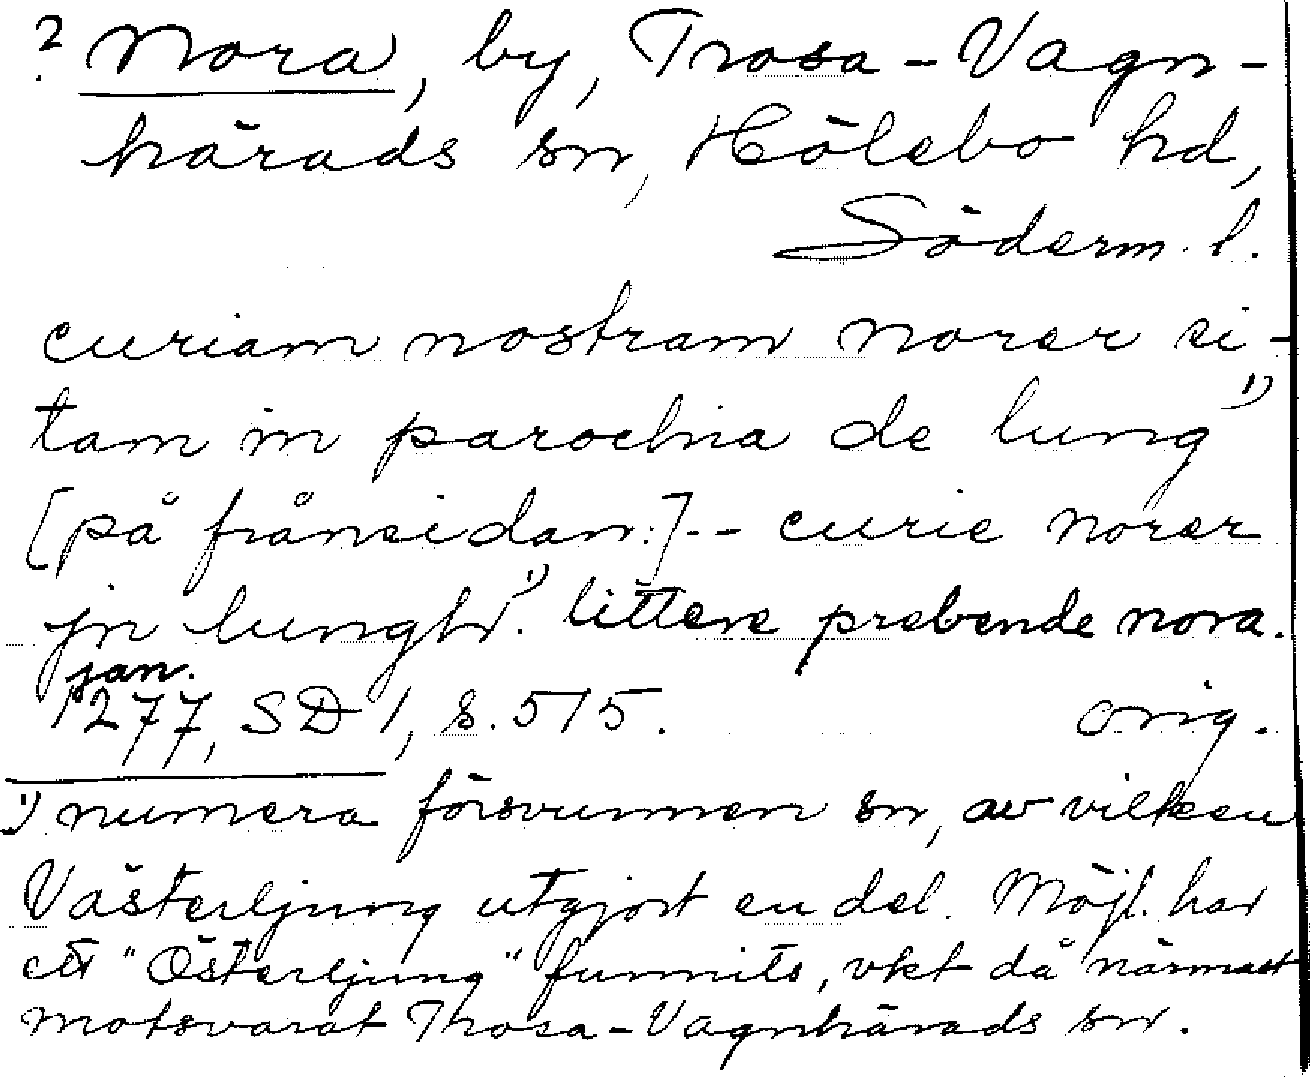 ? Nora, by, Trosa-Vagn-
härads sn, Hölebo hd,
Söderm. l.
curiam nostram norer si-
tam in parochia de lung 1)
[på frånsidan:]-- curie norer
jn lungh 1). littere prebende nora.
jan.
1277, SD 1, s. 515. orig.
1) numera försvunnen sn, av vilken
Västerljung utgjort en del. Möjl. har
ett "Österljung" funnits, vkt då närmast
motsvarat Trosa-Vagnhärads sn.